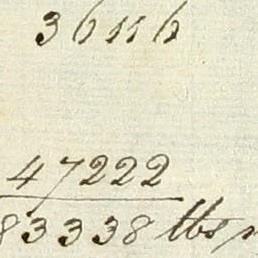 36116
47222
83338 lbs